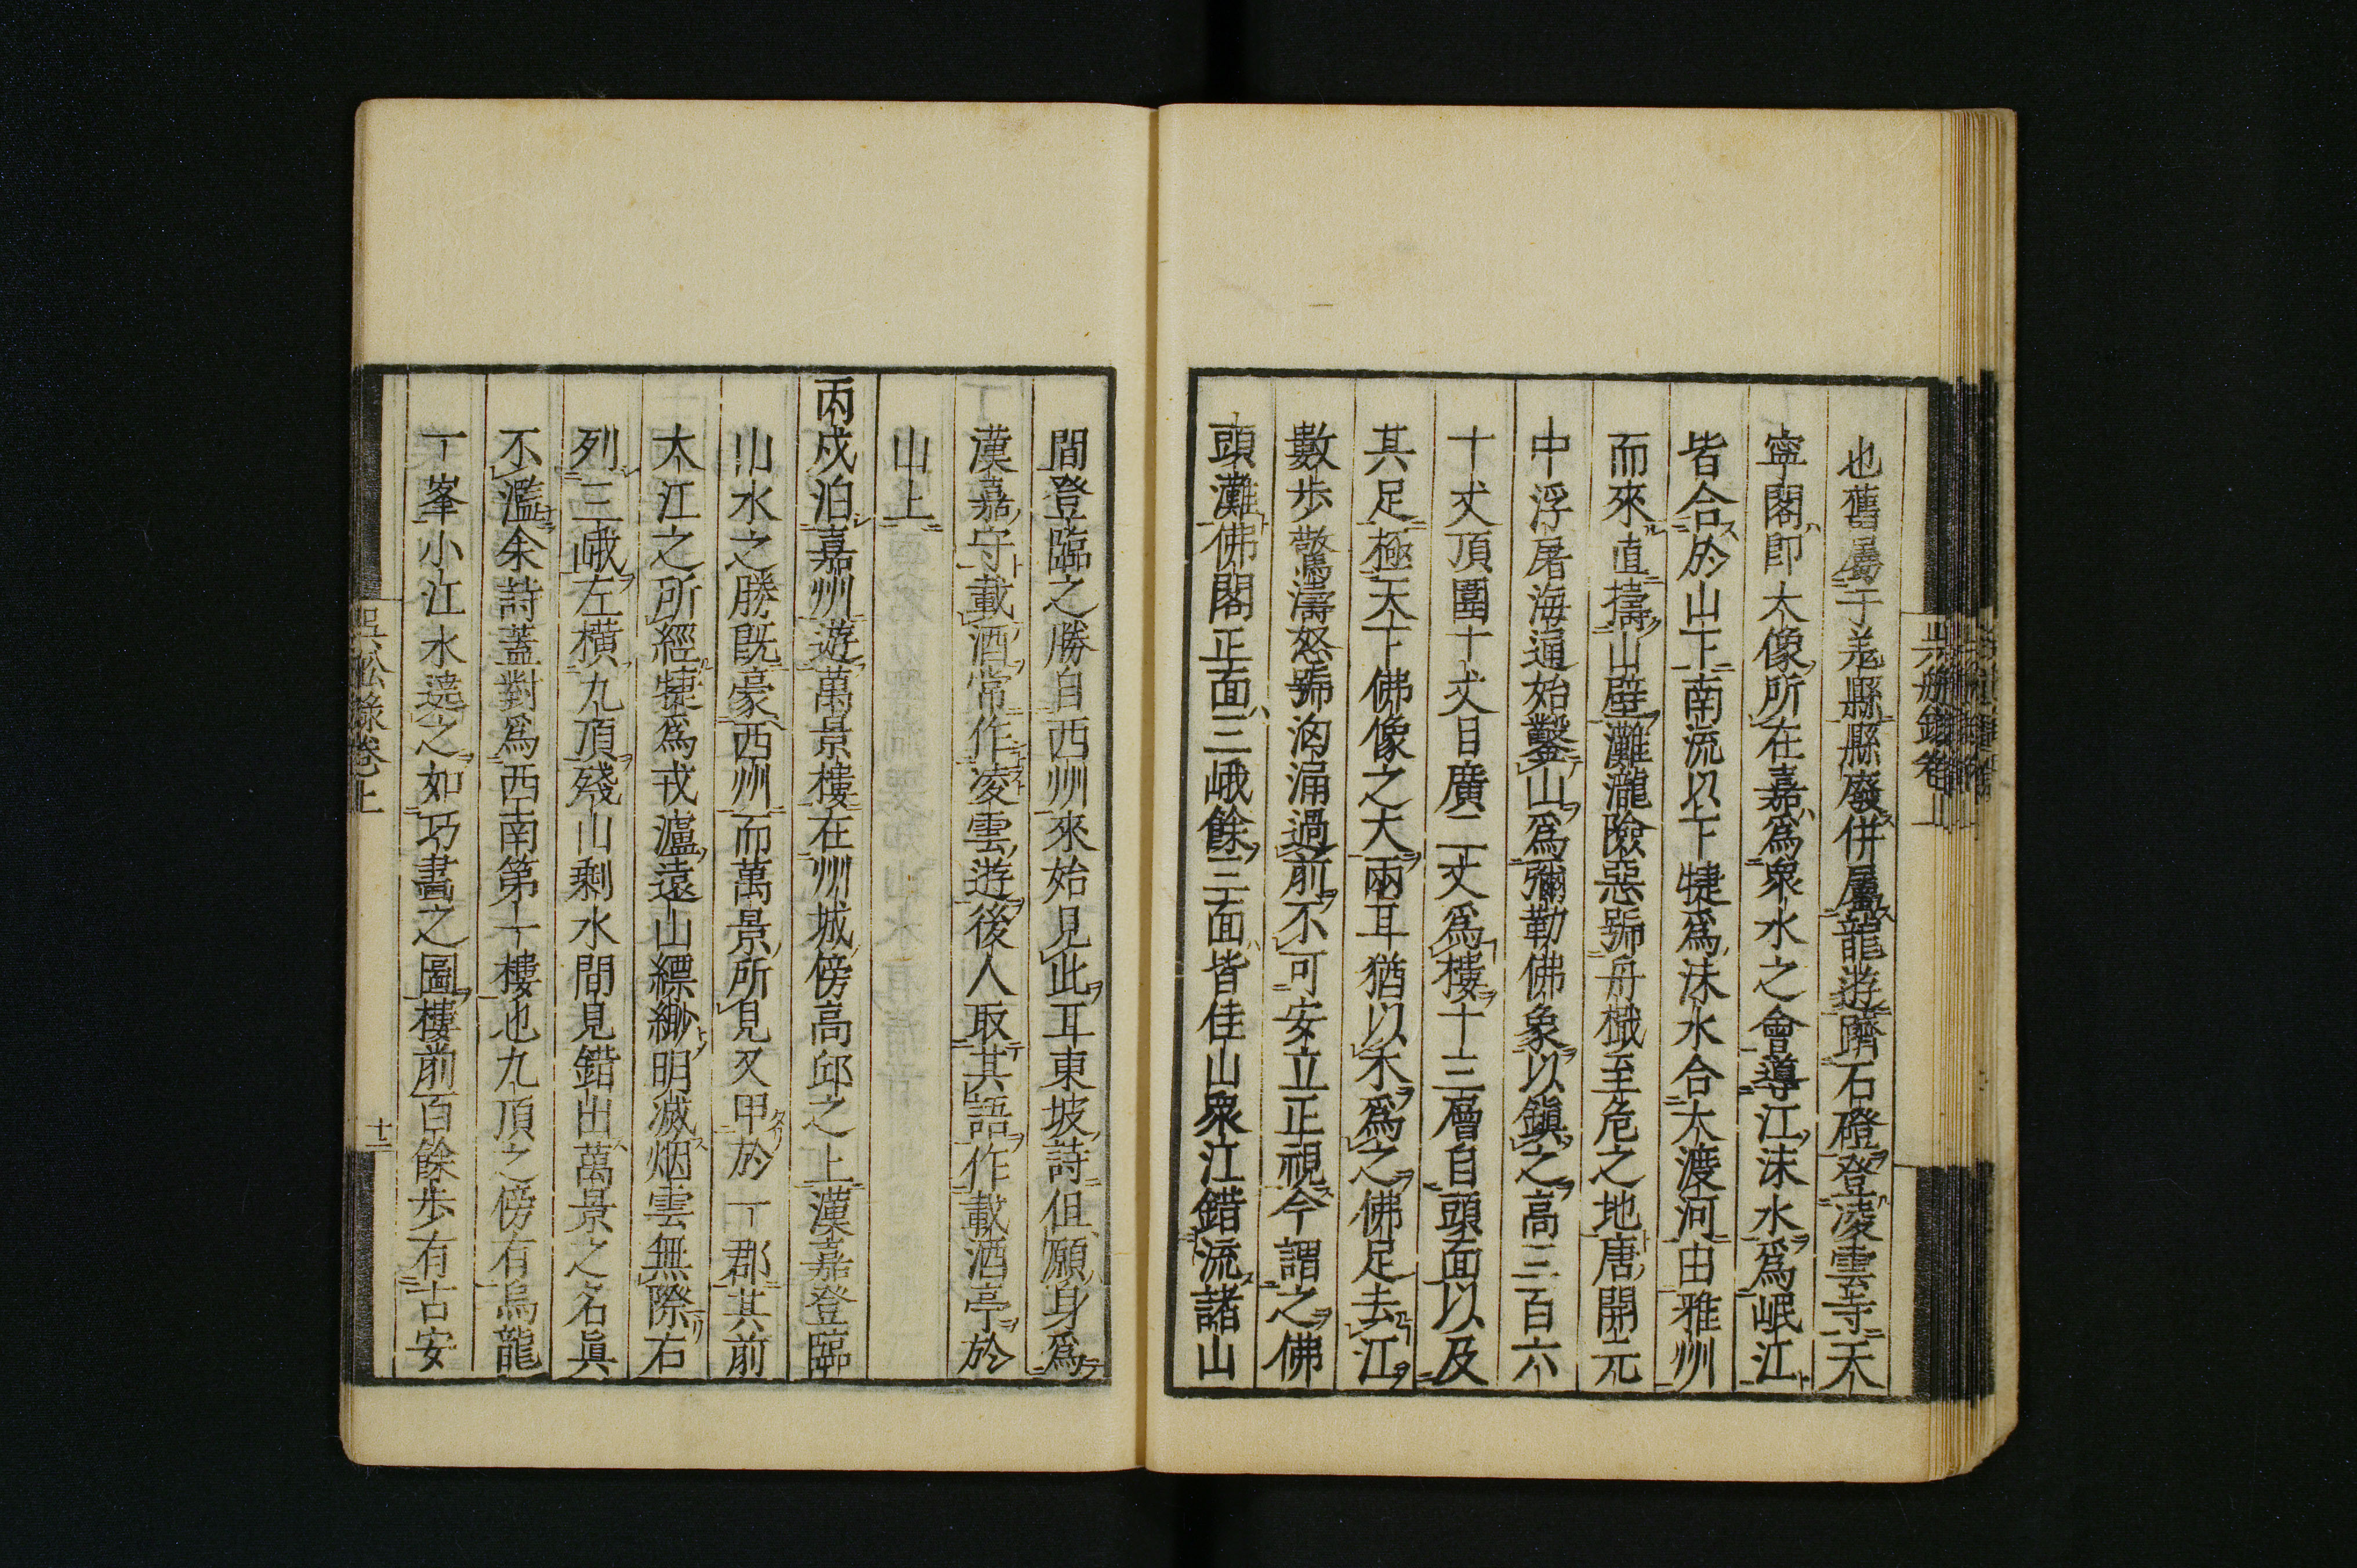 也舊屬于羌縣縣廢併屬龍遊躋石磴登凌雲寺寺天
寧閣即大像所在嘉爲衆水之會導江沫水爲岷江
皆合於山下南流以下犍爲沫水合大渡河由雅州
而來直擣山壁灘瀧險惡號舟檝至危之地唐開元
中浮屠海通始鑿山爲彌勒佛象以鎮之高三百六
十丈頂圍十丈目廣二丈爲樓十三層自頭面以及
其足極天下佛像之大兩耳猶以木爲之佛足去江
數步驚濤怒號洶涌過前不可安立正視今謂之佛
頭灘佛閣正面三峨餘三面皆佳山衆江錯流諸山
間登臨之勝自西州來始見此耳東坡詩但願身爲
漢嘉守載酒常作凌雲遊後人取其語作載酒亭於
山上
丙戌泊嘉州遊萬景樓在州城傍高邱之上漢嘉登臨
山水之勝既豪西州而萬景所見又甲於一郡其前
大江之所經犍爲戎瀘遠山縹緲明滅烟雲無際右
列三峨左橫九頂殘山剩水間見錯出萬景之名眞
不濫余詩蓋對爲西南第一樓也九頂之傍有烏龍
一峯小江水遶之如巧畫之圖樓前百餘步有古安
吳船錄卷上
十二
吳船錄卷上